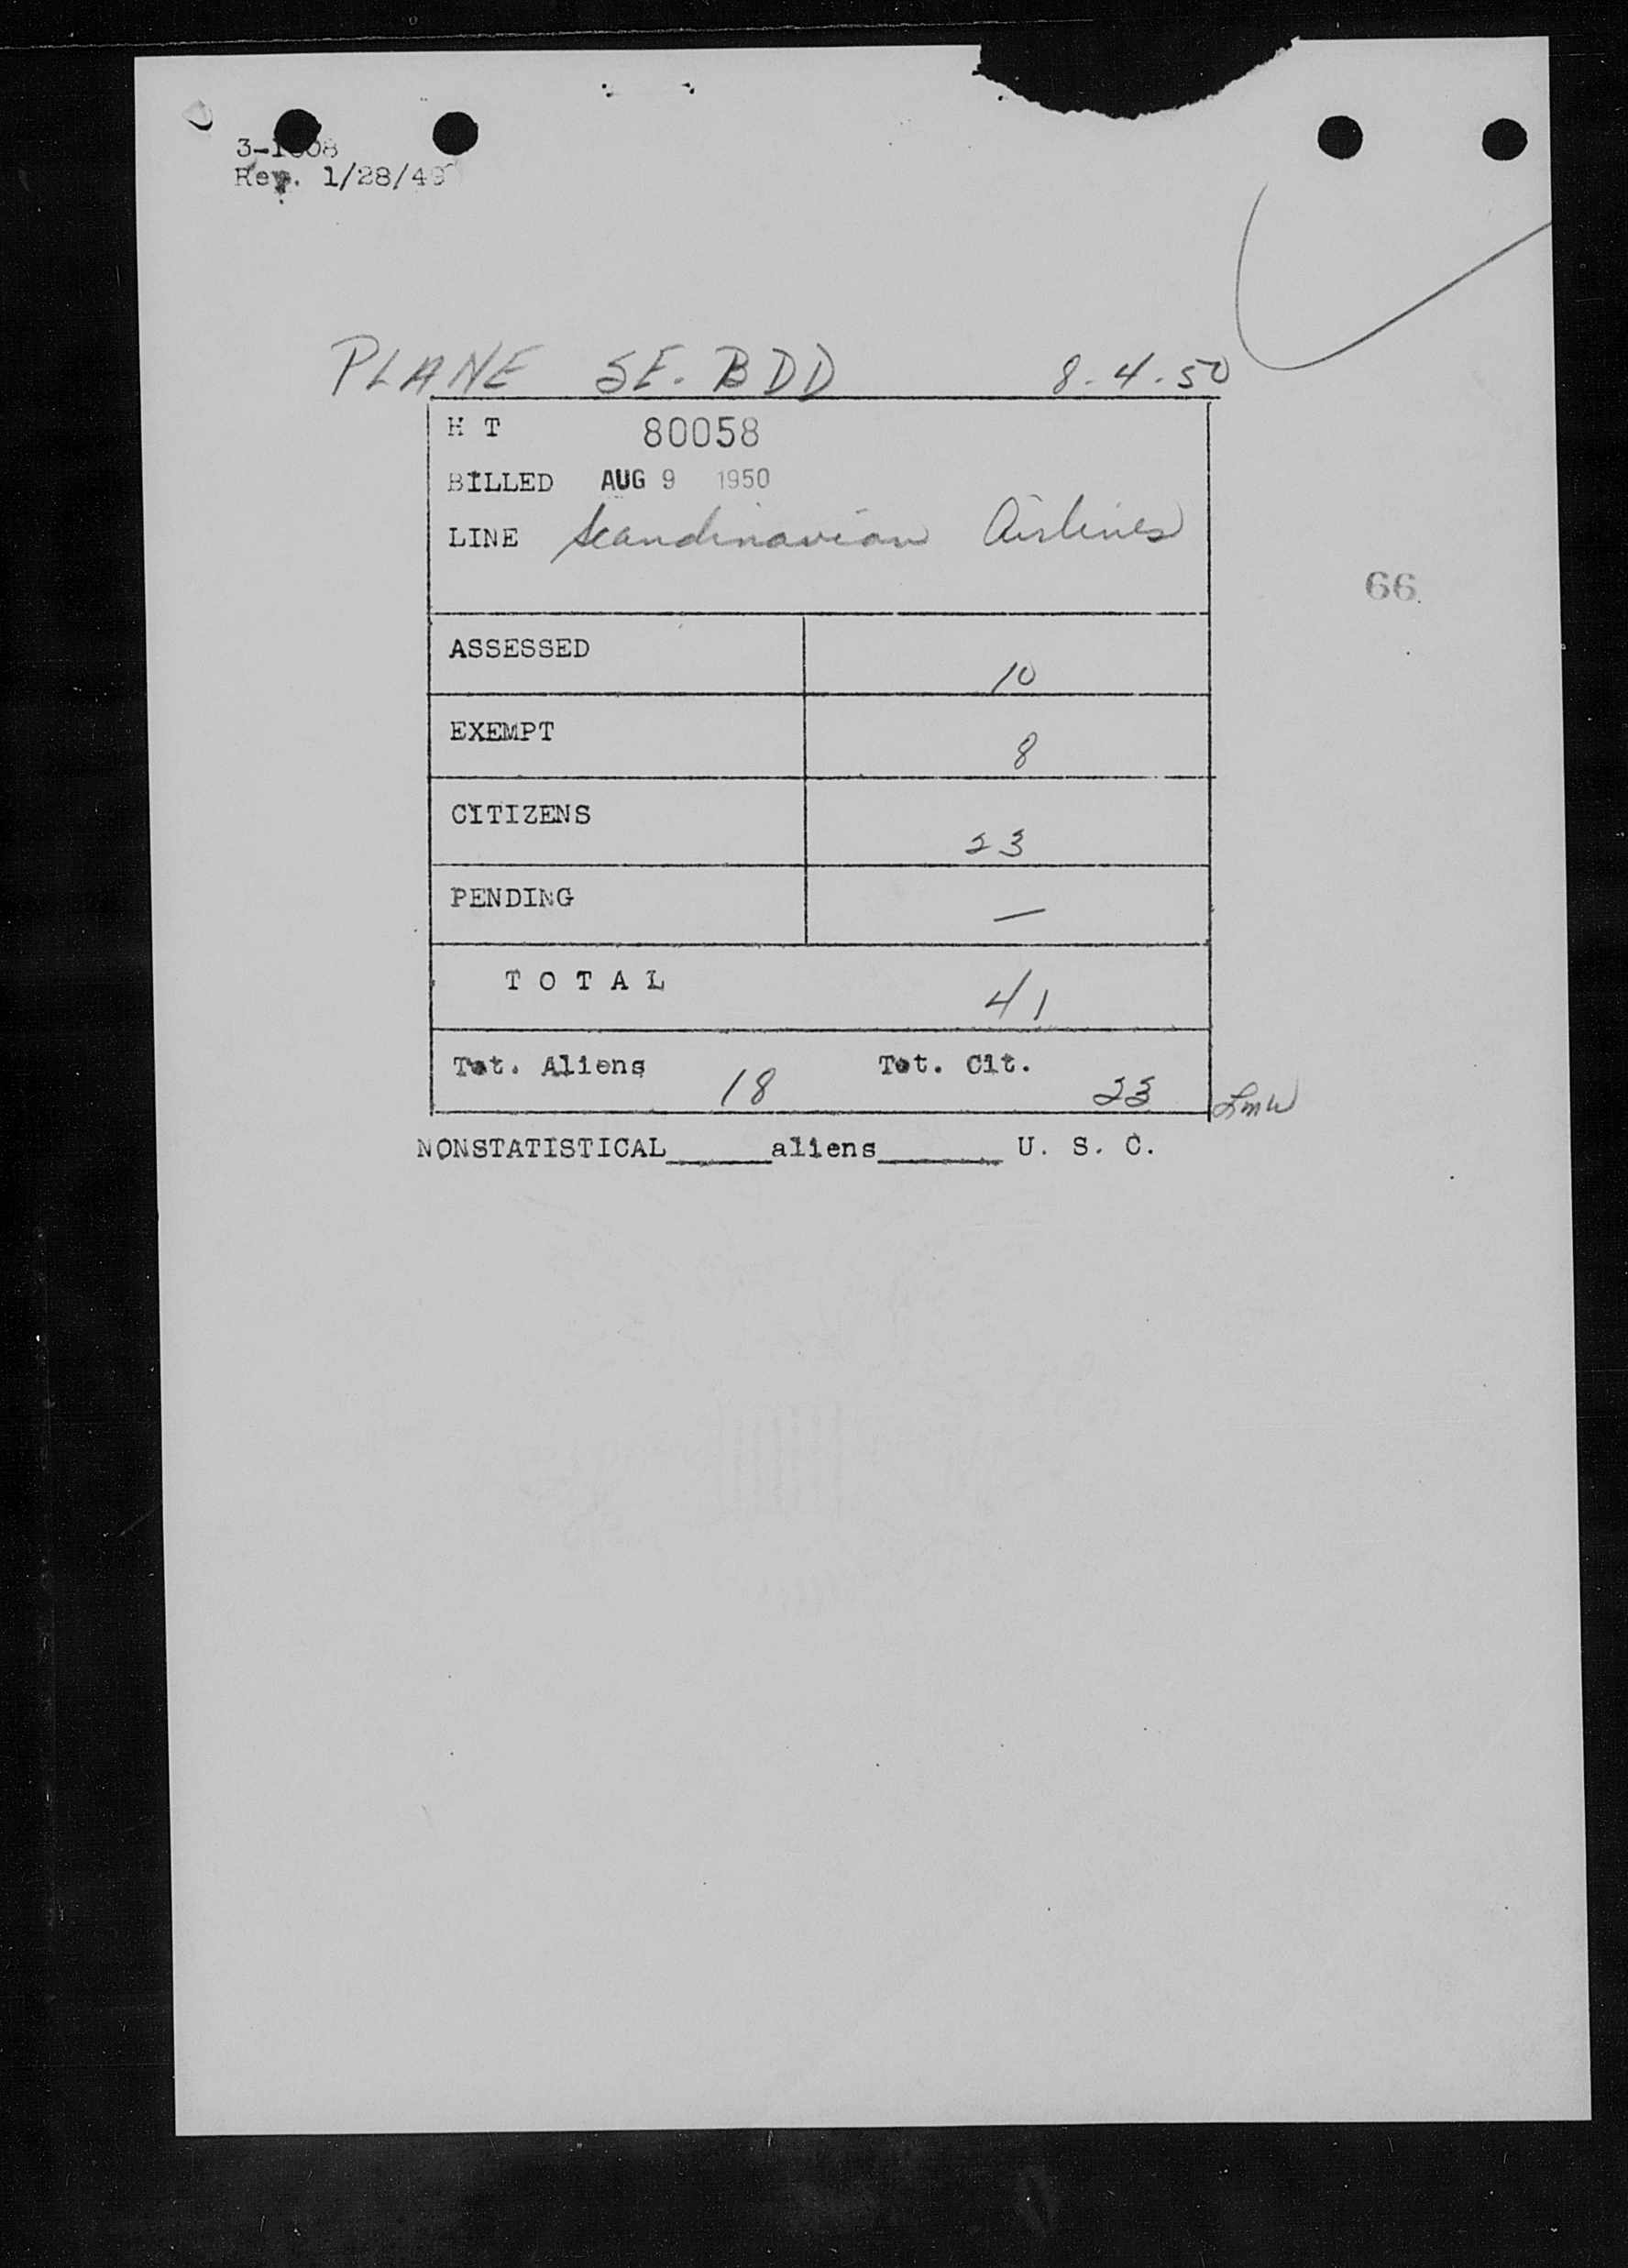 Rev. 1/28/49
PLANE SE. BDD 8.4.50
H T 80058
BILLED AUG 9 1950
LINE Scandinavian Airlines
66
ASSESSED 10
EXEMPT 8
CITIZENS 23
PENDING —
T O T A L 41
Tot. Aliens 18 Tot. Cit. 23 LMW
NONSTATISTICAL______aliens_______ U. S. C.